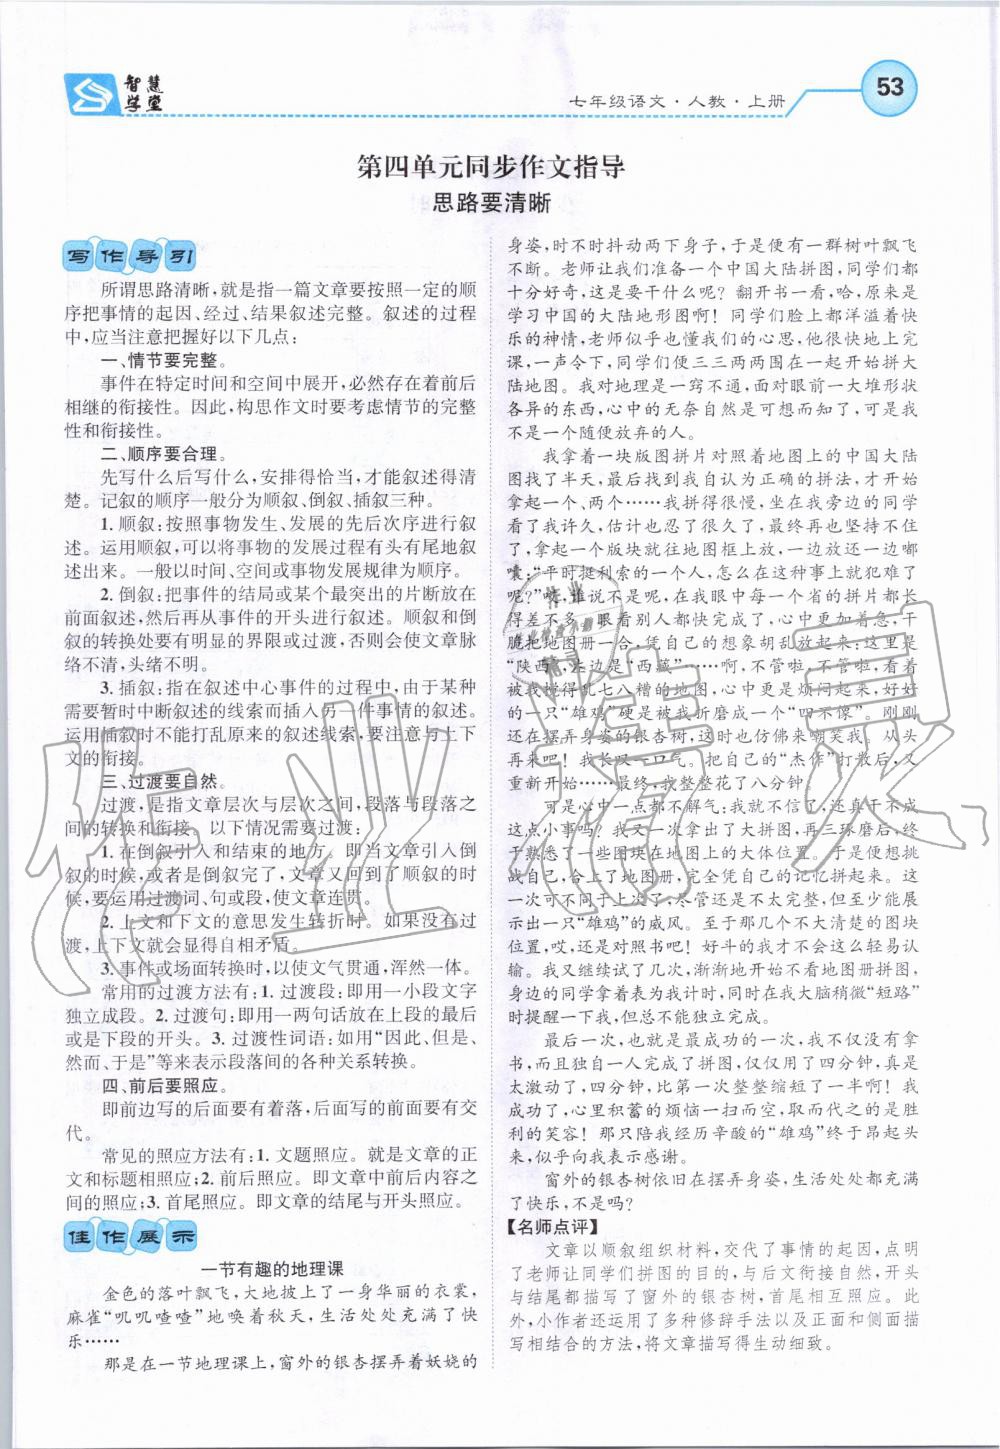 智慧
学堂
七年级语文·人教·上册
53
第四单元同步作文指导
思路要清晰
写作导引
所谓思路清晰,就是指一篇文章要按照一定的顺
序把事情的起因、经过、结果叙述完整。叙述的过程
中,应当注意把握好以下几点:
一、情节要完整。
事件在特定时间和空间中展开,必然存在着前后
相继的衔接性。因此,构思作文时要考虑情节的完整
性和衔接性。
二、顺序要合理。
先写什么后写什么,安排得恰当,才能叙述得清
楚。记叙的顺序一般分为顺叙、倒叙、插叙三种。
1. 顺叙:按照事物发生、发展的先后次序进行叙
述。运用顺叙,可以将事物的发展过程有头有尾地叙
述出来。一般以时间、空间或事物发展规律为顺序。
2. 倒叙:把事件的结局或某个最突出的片断放在
前面叙述,然后再从事件的开头进行叙述。顺叙和倒
叙的转换处要有明显的界限或过渡,否则会使文章脉
络不清,头绪不明。
3. 插叙:指在叙述中心事件的过程中,由于某种
需要暂时中断叙述的线索而插入另一件事情的叙述。
运用插叙时不能打乱原来的叙述线索,要注意与上下
文的衔接。
三、过渡要自然。
过渡,是指文章层次与层次之间,段落与段落之
间的转换和衔接。以下情况需要过渡:
1. 在倒叙引入和结束的地方。即当文章引入倒
叙的时候,或者是倒叙完了,文章又回到了顺叙的时
候,要运用过渡词、句或段,使文章连贯。
2. 上文和下文的意思发生转折时。如果没有过
渡,上下文就会显得自相矛盾。
3. 事件或场面转换时,以使文气贯通,浑然一体。
常用的过渡方法有:1. 过渡段:即用一小段文字
独立成段。2. 过渡句:即用一两句话放在上段的最后
或是下段的开头。3. 过渡性词语:如用“因此、但是、
然而、于是”等来表示段落间的各种关系转换。
四、前后要照应。
即前边写的后面要有着落,后面写的前面要有交
代。
常见的照应方法有:1. 文题照应。就是文章的正
文和标题相照应;2. 前后照应。即文章中前后内容之
间的照应;3. 首尾照应。即文章的结尾与开头照应。
佳作展示
一节有趣的地理课
金色的落叶飘飞,大地披上了一身华丽的衣裳,
麻雀“叽叽喳喳”地唤着秋天,生活处处充满了快
乐……
那是在一节地理课上,窗外的银杏摆弄着妖娆的
身姿,时不时抖动两下身子,于是便有一群树叶飘飞
不断。老师让我们准备一个中国大陆拼图,同学们都
十分好奇,这是要干什么呢?翻开书一看,哈,原来是
学习中国的大陆地形图啊!同学们脸上都洋溢着快
乐的神情,老师似乎也懂我们的心思,他很快地上完
课,一声令下,同学们便三三两两围在一起开始拼大
陆地图。我对地理是一窍不通,面对眼前一大堆形状
各异的东西,心中的无奈自然是可想而知,可是我
不是一个随便放弃的人。
我拿着一块版图拼片对照着地图上的中国大陆
图找了半天,最后找到自认为正确的拼法,才开始
拿起一个、两个……我拼得很慢,坐在我旁边的同学
看了我许久,估计也忍了很久了,最终再也坚持不住
了,拿起一个版块就往地图框上放,一边放还一边嘟
囔:“平时挺利索的一个人,怎么在这种事上就犹犹豫
豫呢?”嘿,谁说不是呢,在我眼中每一个省的拼片都长
得差不多。眼看别人都快拼完了,心中更加着急,干
脆把地图册一合,凭自己的想象胡乱放起来:这是
“陕西”,左边是“西藏”……啊,不管啦,不管啦。看着
被我搅得乱七八糟的地图,心中更是烦闷起来,好好
的一只“雄鸡”硬是被我折磨成一个“四不像”。刚刚
还在摆弄身姿的银杏树,这时也仿佛来嘲笑我。从头
再来吧!我长叹一口气。把自己的“杰作”打散后,又
重新开始……最终,我整整花了八分钟。
可是心中一点都不解气:我就不信了,还真干不成
这点小事吗?我又一次拿出了大拼图,再三琢磨后,终
于熟悉了一些图块在地图上的大体位置。于是我相信
自己,合上了地图册,凭自己的记忆拼起来。这
一次可不同于上次了,尽管还是不太完整,但至少能展
示出一只“雄鸡”的威风。至于那几个不大清楚的图块
位置,哎,还是对照书吧!好斗的我才不会这么轻易认
输。我又继续试了几次,渐渐地开始进行地图册拼图,
身边的同学拿着表为我计时,同时在我大脑稍微“短路”
时提醒一下我,但总不能独立完成。
最后一次,也就是最成功的一次,我不仅没有拿
书,而且独自一人完成了拼图,仅仅用了四分钟,真是
太激动了,四分钟,比第一次整整缩短了一半啊!我
成功了,心里积蓄的烦恼一扫而空,取而代之的是胜
利的笑容!那只陪我经历辛酸的“雄鸡”终于昂起头
来,似乎向我表示感谢。
窗外的银杏树依旧在摆弄身姿,生活处处都充满
了快乐,不是吗?
【名师点评】
文章以顺叙组织材料,交代了事情的起因,点明
了老师让同学们拼图的目的,与后文衔接自然,开头
与结尾都描写了窗外的银杏树,首尾相互照应。此
外,小作者还运用了多种修辞手法以及正面和侧面描
写相结合的方法,将文章描写得生动细致。
作业精灵